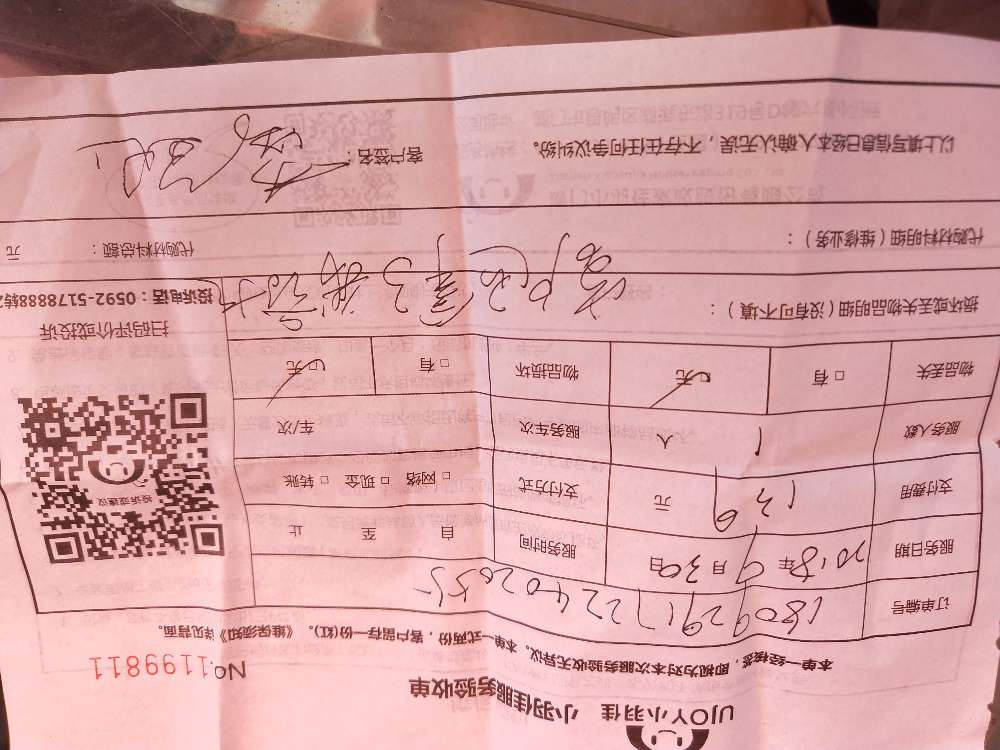 UJOY小羽佳 小羽佳服务验收单
本单一经接签,即视为对本次服务验收无异议。本单一式两份,客户留存一份(红)。《维保须知》详见背面。
No.1199811
订单编号 18092917224026
服务日期 2018年9月30日 服务时间 自 至 止
支付费用 130 元 支付方式 □ 网络 □ 现金 □ 转账
服务人数 1 人 服务车次 车/次
物品丢失 □ 有 □ 无 物品损坏 □ 有 □ 无
投诉或建议
扫码评价或投诉
投诉电话:0592-5178888转2
损坏或丢失物品明细(没有可不填):
代购材料明细(维修业务): 代购材料总额: 元
以上填写信息已经本人确认无误,不存在任何争议纠纷。 客户签名: